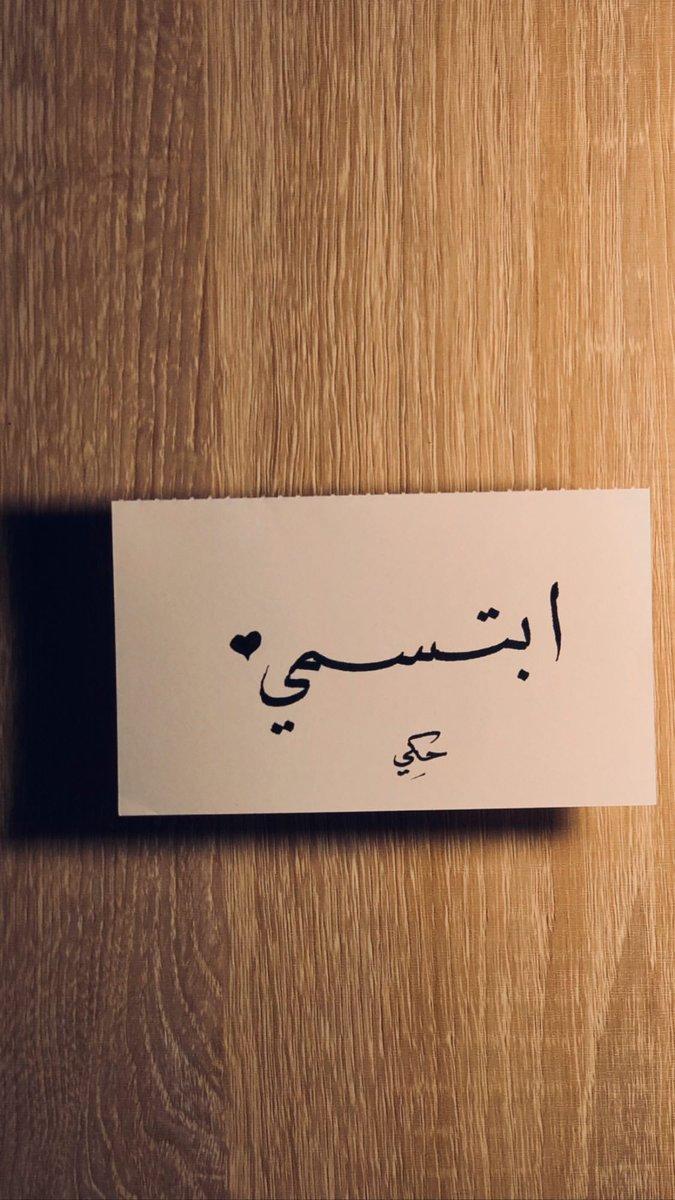 ابتسمي ♥
حَكِي